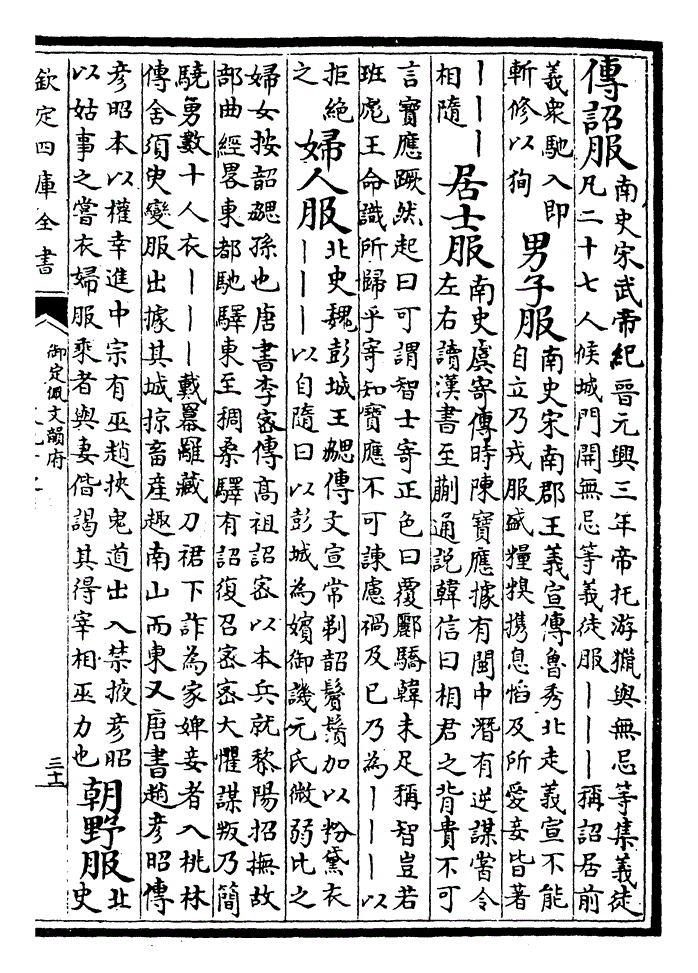 傳詔服
南史宋武帝紀晉元興三年帝托游獵與無忌等集義徒
凡二十七人候城門開無忌等義徒服｜｜｜稱詔居前
義衆馳入即
斬修以狥
男子服
南史宋南郡王義宣傳魯秀北走義宣不能
自立乃戎服盛糧糗携息慆及所愛妾皆著
｜｜｜
相隨
居士服
南史虞寄傳時陳寶應據有閩中潛有逆謀嘗令
左右讀漢書至蒯通説韓信曰相君之背貴不可
言寶應蹶然起曰可謂智士寄正色曰覆酈驕韓未足稱智豈若
班彪王命識所歸乎寄知寶應不可諫慮禍及已乃為｜｜｜以
拒絶
之
婦人服
北史魏彭城王勰傳文宣常剃韶鬢鬚加以粉黛衣
｜｜｜以自隨曰以彭城為嬪御譏元氏微弱比之
婦女按韶勰孫也唐書李宻傳高祖詔宻以本兵就黎陽招撫故
部曲經畧東都馳驛東至稠桑驛有詔復召宻宻大懼謀叛乃簡
驍勇數十人衣｜｜｜戴羃䍦藏刀裙下詐為家婢妾者入桃林
傳舍須臾變服出據其城掠畜産趣南山而東又唐書趙彦昭傳
彦昭本以權幸進中宗有巫趙挾鬼道出入禁掖彦昭
以姑事之嘗衣婦服乘者與妻偕謁其得宰相巫力也
朝野服
北
史
欽定四庫全書
御定佩文韻府
三十